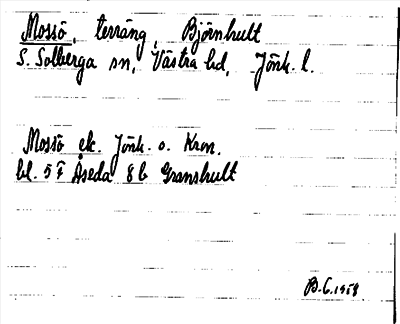 Mossö, terräng, Björnhult
S. Solberga sn, Västra hd, Jönk. l.
Mossö ek. Jönk. o. Kron.
bl. 5 F Åseda 8 b Granshult
B.C. 1958